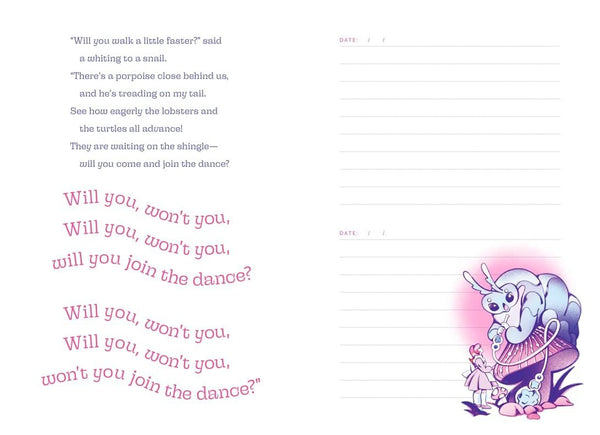 “Will you walk a little faster?” said
a whiting to a snail.
“There’s a porpoise close behind us,
and he’s treading on my tail.
See how eagerly the lobsters and
the turtles all advance!
They are waiting on the shingle—
will you come and join the dance?
Will you, won’t you,
Will you, won’t you,
will you join the dance?
Will you, won’t you,
Will you, won’t you,
won’t you join the dance?”
DATE: / /
DATE: / /